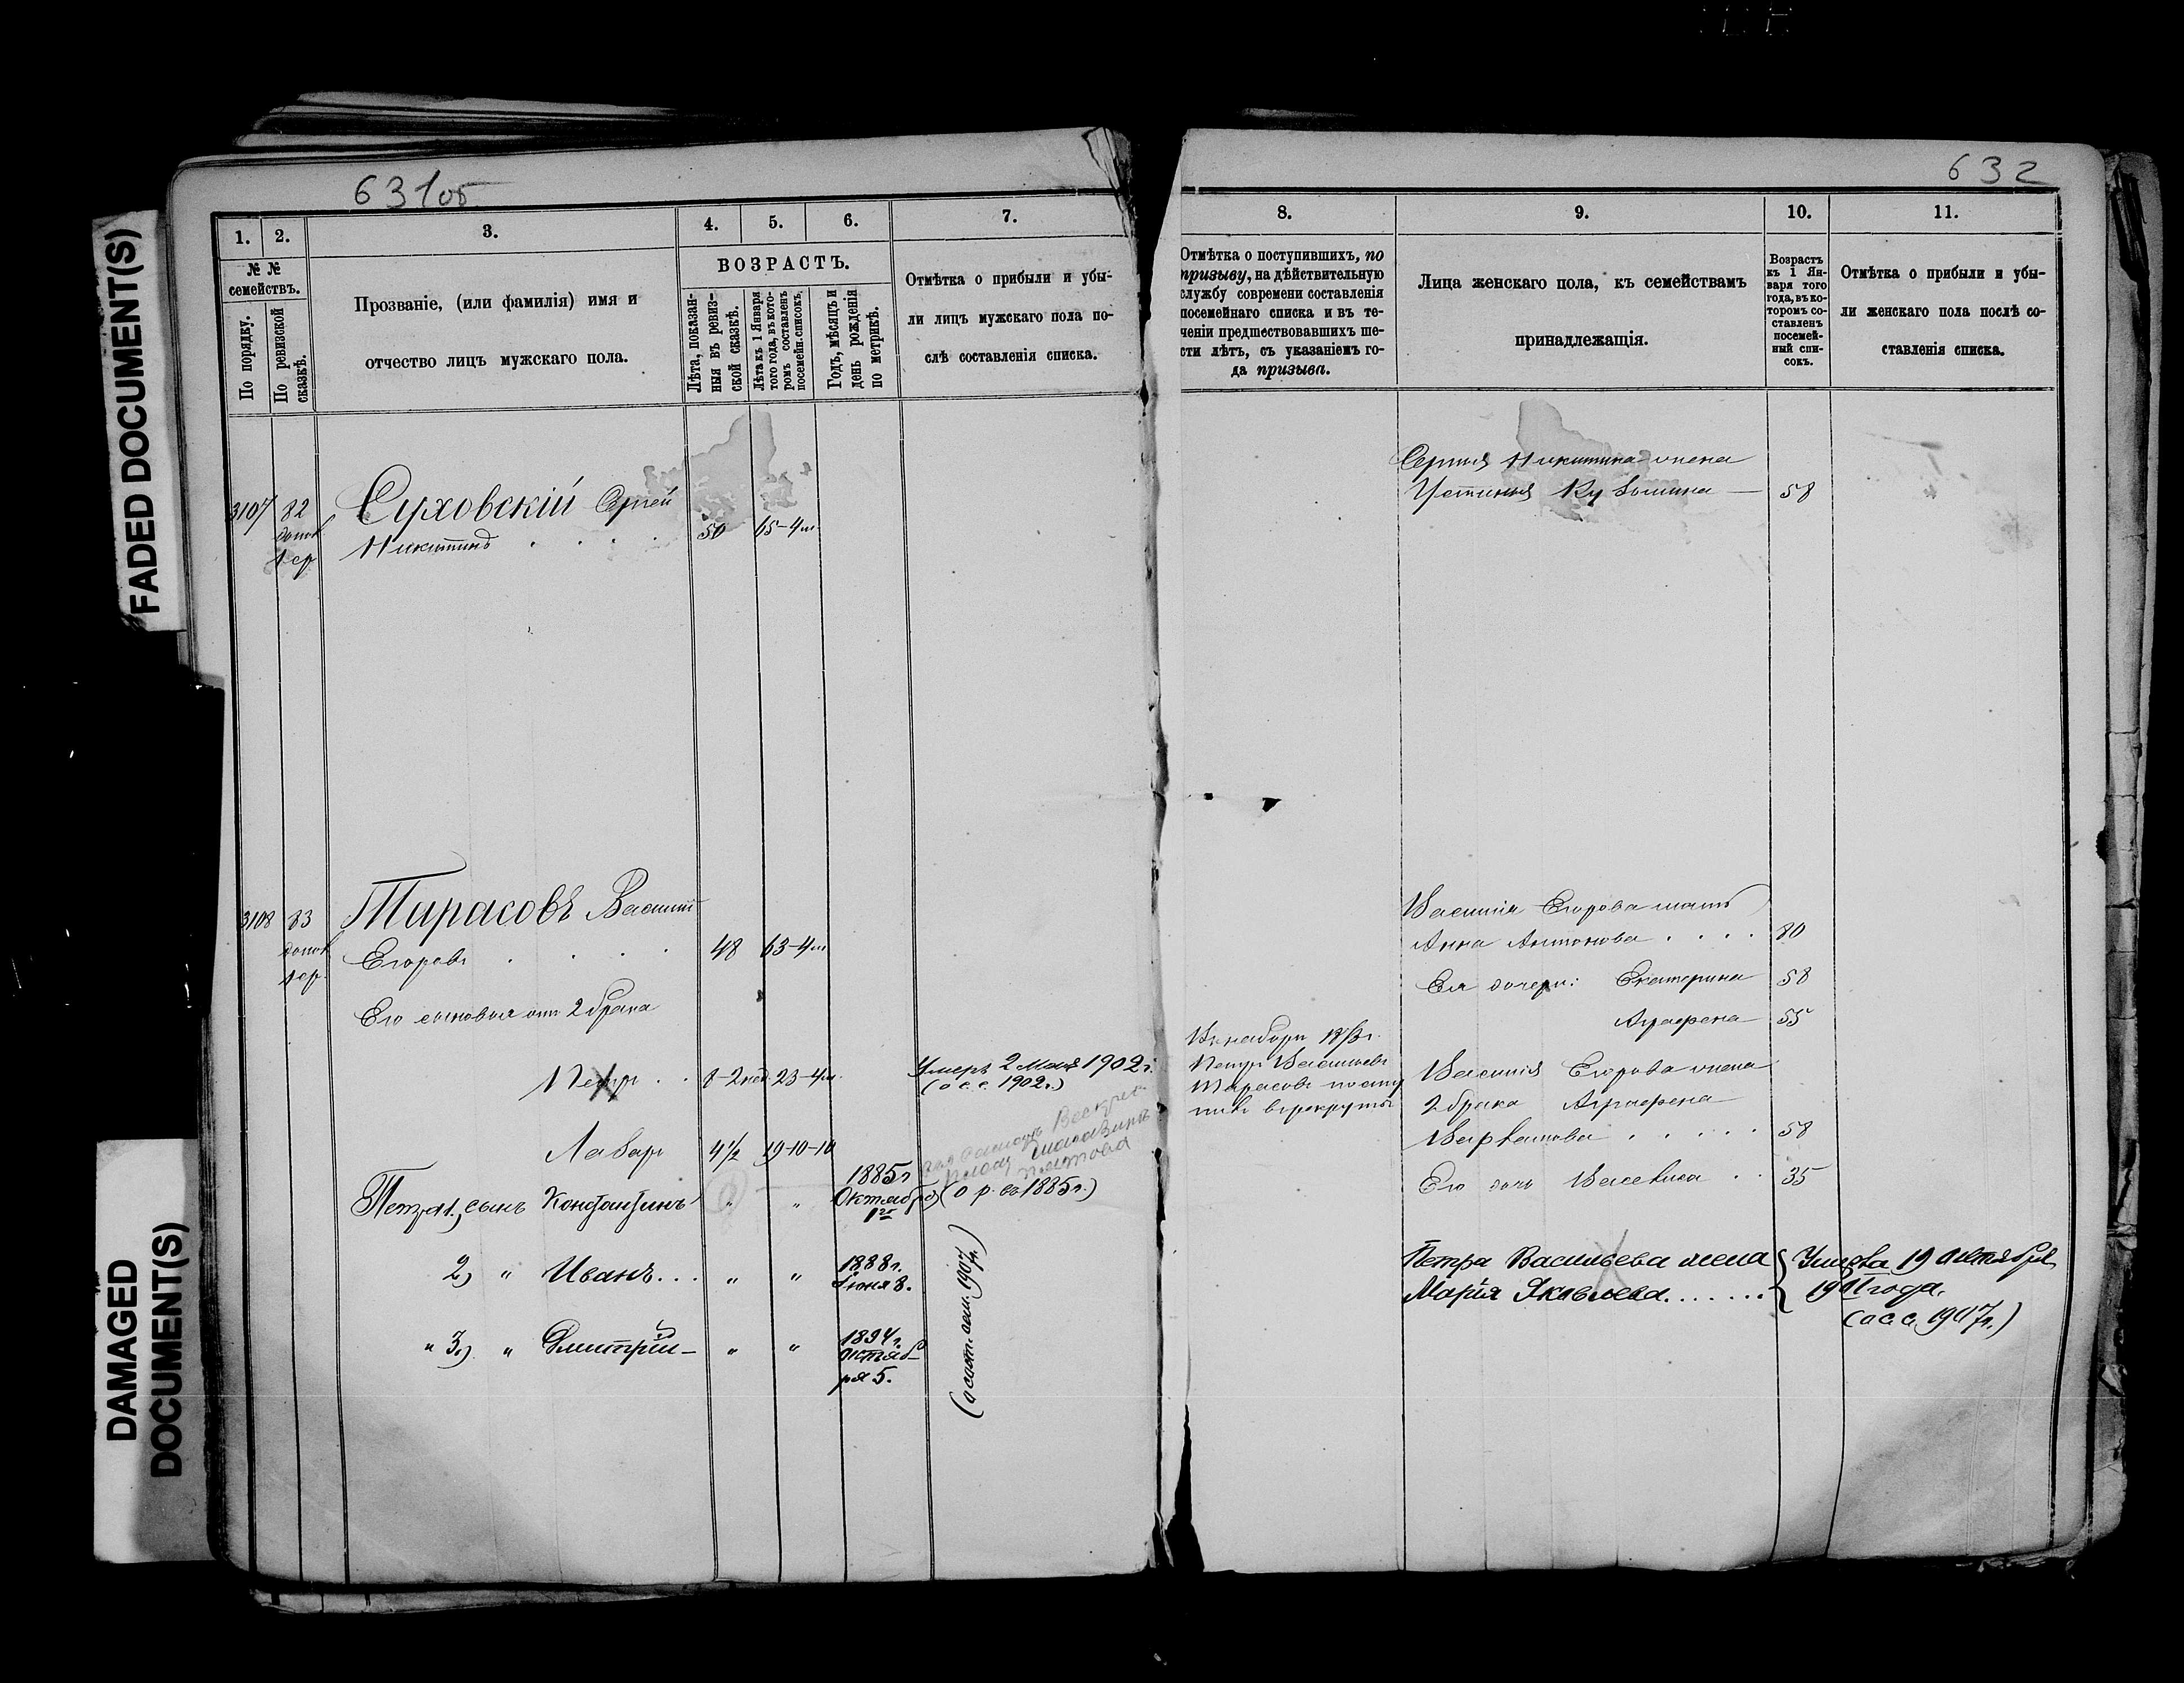 FADED DOCUMENT(S)
DAMAGED
DOCUMENT(S)
631об
1.
2.
3.
4.
5.
6.
7.
№ №
семействъ.
По порядку.
По ревизской
сказкѣ.
Прозваніе, (или фамилія) имя и
отчество лицъ мужскаго пола.
ВОЗРАСТЪ.
Лѣта, показан-
ныя въ ревиз-
ской сказкѣ.
Лѣта къ 1 Января
того года, въ кото-
ромъ составленъ
посемейн. списокъ.
Годъ, мѣсяцъ и
день рожденія
по метрикѣ.
Отмѣтка о прибыли и убы-
ли лицъ мужскаго пола по-
слѣ составленія списка.
3107 82 Суховскій Сергей
Никитинъ . . . . 50 65-4м
3108 83 Тарасовъ Василій
Егоровъ . . . . 48 63-4м
Его сыновья отъ 2 брака
Петръ . . 8-2нед 23-4м. Умеръ 2 Мая 1902г.
(о с. с. 1902г.)
Лаваръ 4½ 19-10-10
Петра 1, сынъ Константинъ " " 1885г
Октября
1го
(о р. въ 1885г.)
2) " Иванъ... " " 1888г.
Іюня 8.
" 3) " Дмитрій - " " 1894г.
Октяб-
ря 5.
(о сост. сем. 1907г.)
632
8.
9.
10.
11.
Отмѣтка о поступившихъ, по
призыву, на дѣйствительную
службу современи составленія
посемейнаго списка и въ те-
ченіи предшествовавшихъ ше-
сти лѣтъ, съ указаніемъ го-
да призыва.
Лица женскаго пола, къ семействамъ
принадлежащія.
Возрастъ
къ 1 Ян-
варя того
года, въ ко-
торомъ со-
ставленъ
посемей-
ный спи-
сокъ.
Отмѣтка о прибыли и убы-
ли женскаго пола послѣ со-
ставленія списка.
Сергія Никитина жена
Устинья Кузьмина — 58
Василія Егорова мать
Анна Антонова . . . . 80
Ея дочери: Екатерина 58
Аграфена 55
Петръ Васильевъ
Тарасовъ посту
пивъ в рекруты
Василія Егорова жена
2 брака Аграфена
. . . . . 58
Его дочь Василиса . . 35
Петра Васильева жена
Марія Яковлева.......
Умерла 19 Октября
1901 года.
(о с. с. 1907г.)